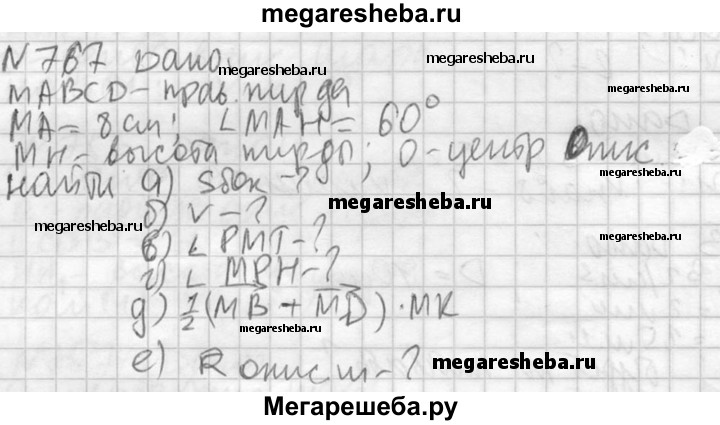 megaresheba.ru
N 767 Дано:
megaresheba.ru
megaresheba.ru
MABCD - прав. пир-да
MA = 8 см; ∠MAH = 60°
MH - высота пир-ды; O - центр опис.
найти а) Sбок - ?
megaresheba.ru
б) V - ?
megaresheba.ru
в) ∠ PMT - ?
г) ∠ MPH - ?
д) 1/2 (MB + MD) · MK
megaresheba.ru
megaresheba.ru
е) R опис ш - ?
megaresheba.ru
Мегарешеба.ру